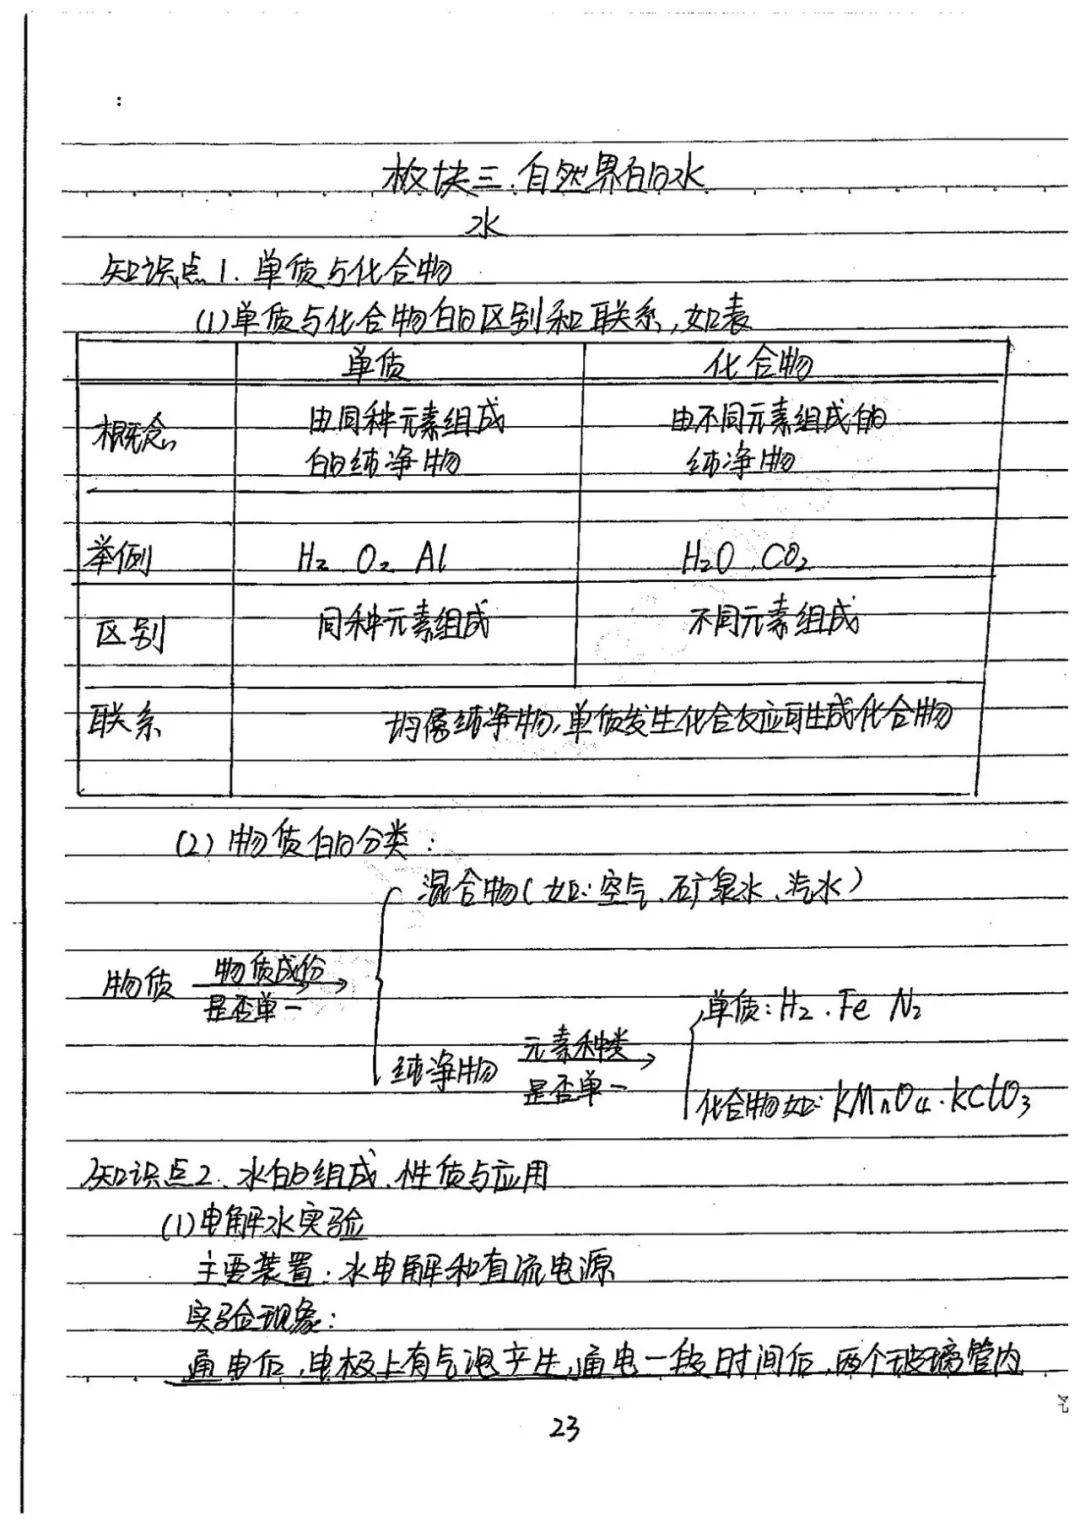 :
板块三.自然界的水
水
知识点1.单质与化合物
(1)单质与化合物的区别和联系,如表
单质 化合物
概念 由同种元素组成 由不同元素组成的
的纯净物 纯净物
举例 H₂ O₂ Al H₂O、CO₂
区别 同种元素组成 不同元素组成
联系 均属纯净物,单质发生化合反应可生成化合物
(2)物质的分类:
混合物(如:空气、矿泉水、汽水)
物质 物质成份
是否单一
单质:H₂.Fe N₂
纯净物 元素种类
是否单一
化合物如:KMnO₄.KClO₃
知识点2.水的组成、性质与应用
(1)电解水实验
主要装置:水电解和直流电源
实验现象:
通电后,电极上有气泡产生,通电一段时间后,两个玻璃管内
23